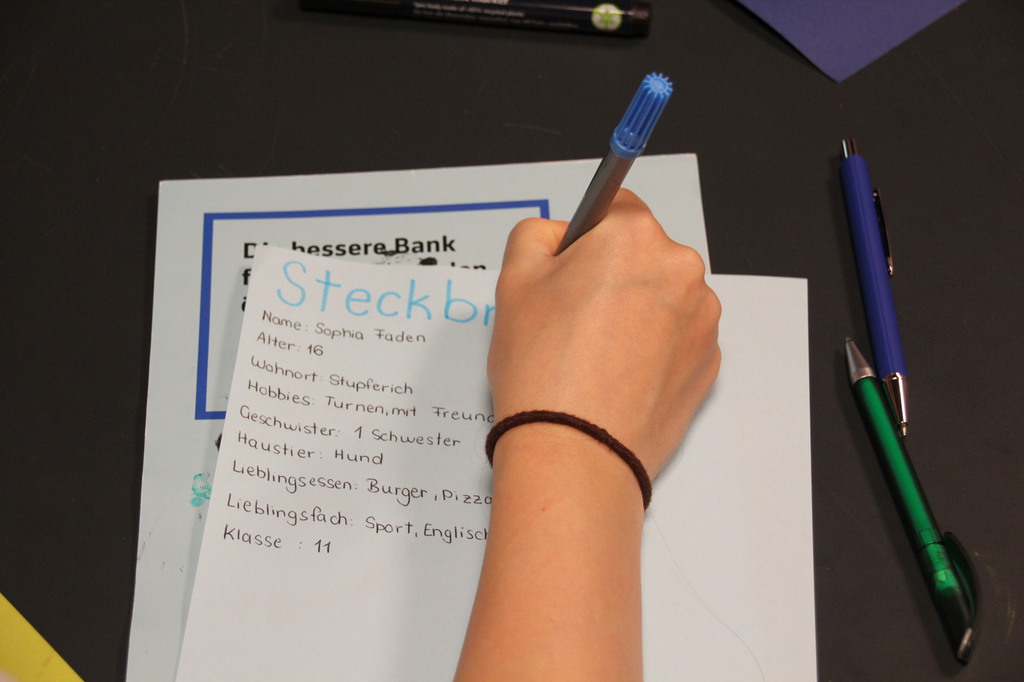 Die bessere Bank
Steckbr
Name: Sophia Faden
Alter: 16
Wohnort: Stupferich
Hobbies: Turnen, mit Freund
Geschwister: 1 Schwester
Haustier: Hund
Lieblingsessen: Burger, Pizza
Lieblingsfach: Sport, Englisch
Klasse : 11